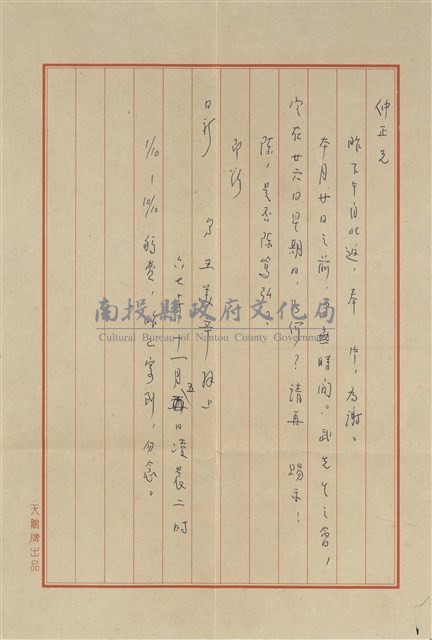 仲正兄
昨下午自北返,奉 片,為謝。
本月廿日之前,無時間。武先生之會,
定在廿六日星期日,如何?請再 賜示!
陳,是否陳篤弘?
即祈
日新 弟 王
六七年十一月五日凌晨二時
1/10–10/10 稿費,昨已寄到,勿念。
南投縣政府文化局
Cultural Bureau of Nantou County Government
天鵝牌出品